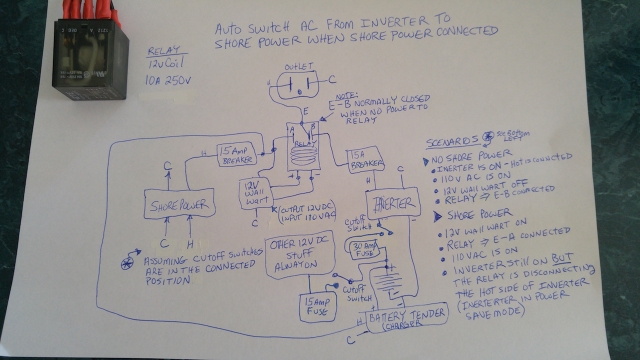 AUTO SWITCH AC FROM INVERTER TO
SHORE POWER WHEN SHORE POWER CONNECTED
RELAY
12V COIL
10A 250V
OUTLET
H
C
NOTE:
E-B NORMALLY CLOSED
WHEN NO POWER TO
RELAY
E
A
B
RELAY
15 AMP
BREAKER
H
C
SHORE POWER
C
H
12V
WALL
WART
C
OUTPUT 12VDC
INPUT 110VAC
15A
BREAKER
H
C
INVERTER
CUTOFF
SWITCH
30 AMP
FUSE
OTHER 12V DC
STUFF
ALWAYON
15 AMP
FUSE
CUTOFF
SWITCH
H
C
BATTERY TENDER
(CHARGER)
ASSUMING CUTOFF SWITCHES
ARE IN THE CONNECTED
POSITION.
SCENARIOS
SEE BOTTOM
LEFT
NO SHORE POWER
INERTER IS ON - HOT IS CONNECTED
110V AC IS ON
12V WALL WART OFF
RELAY → E-B CONNECTED
SHORE POWER
12V WALL WART ON
RELAY → E-A CONNECTED
110 VAC IS ON
INVERTER STILL ON BUT
THE RELAY IS DISCONNECTING
THE HOT SIDE OF INVERTER
(INERTERTER IN POWER
SAVE MODE)